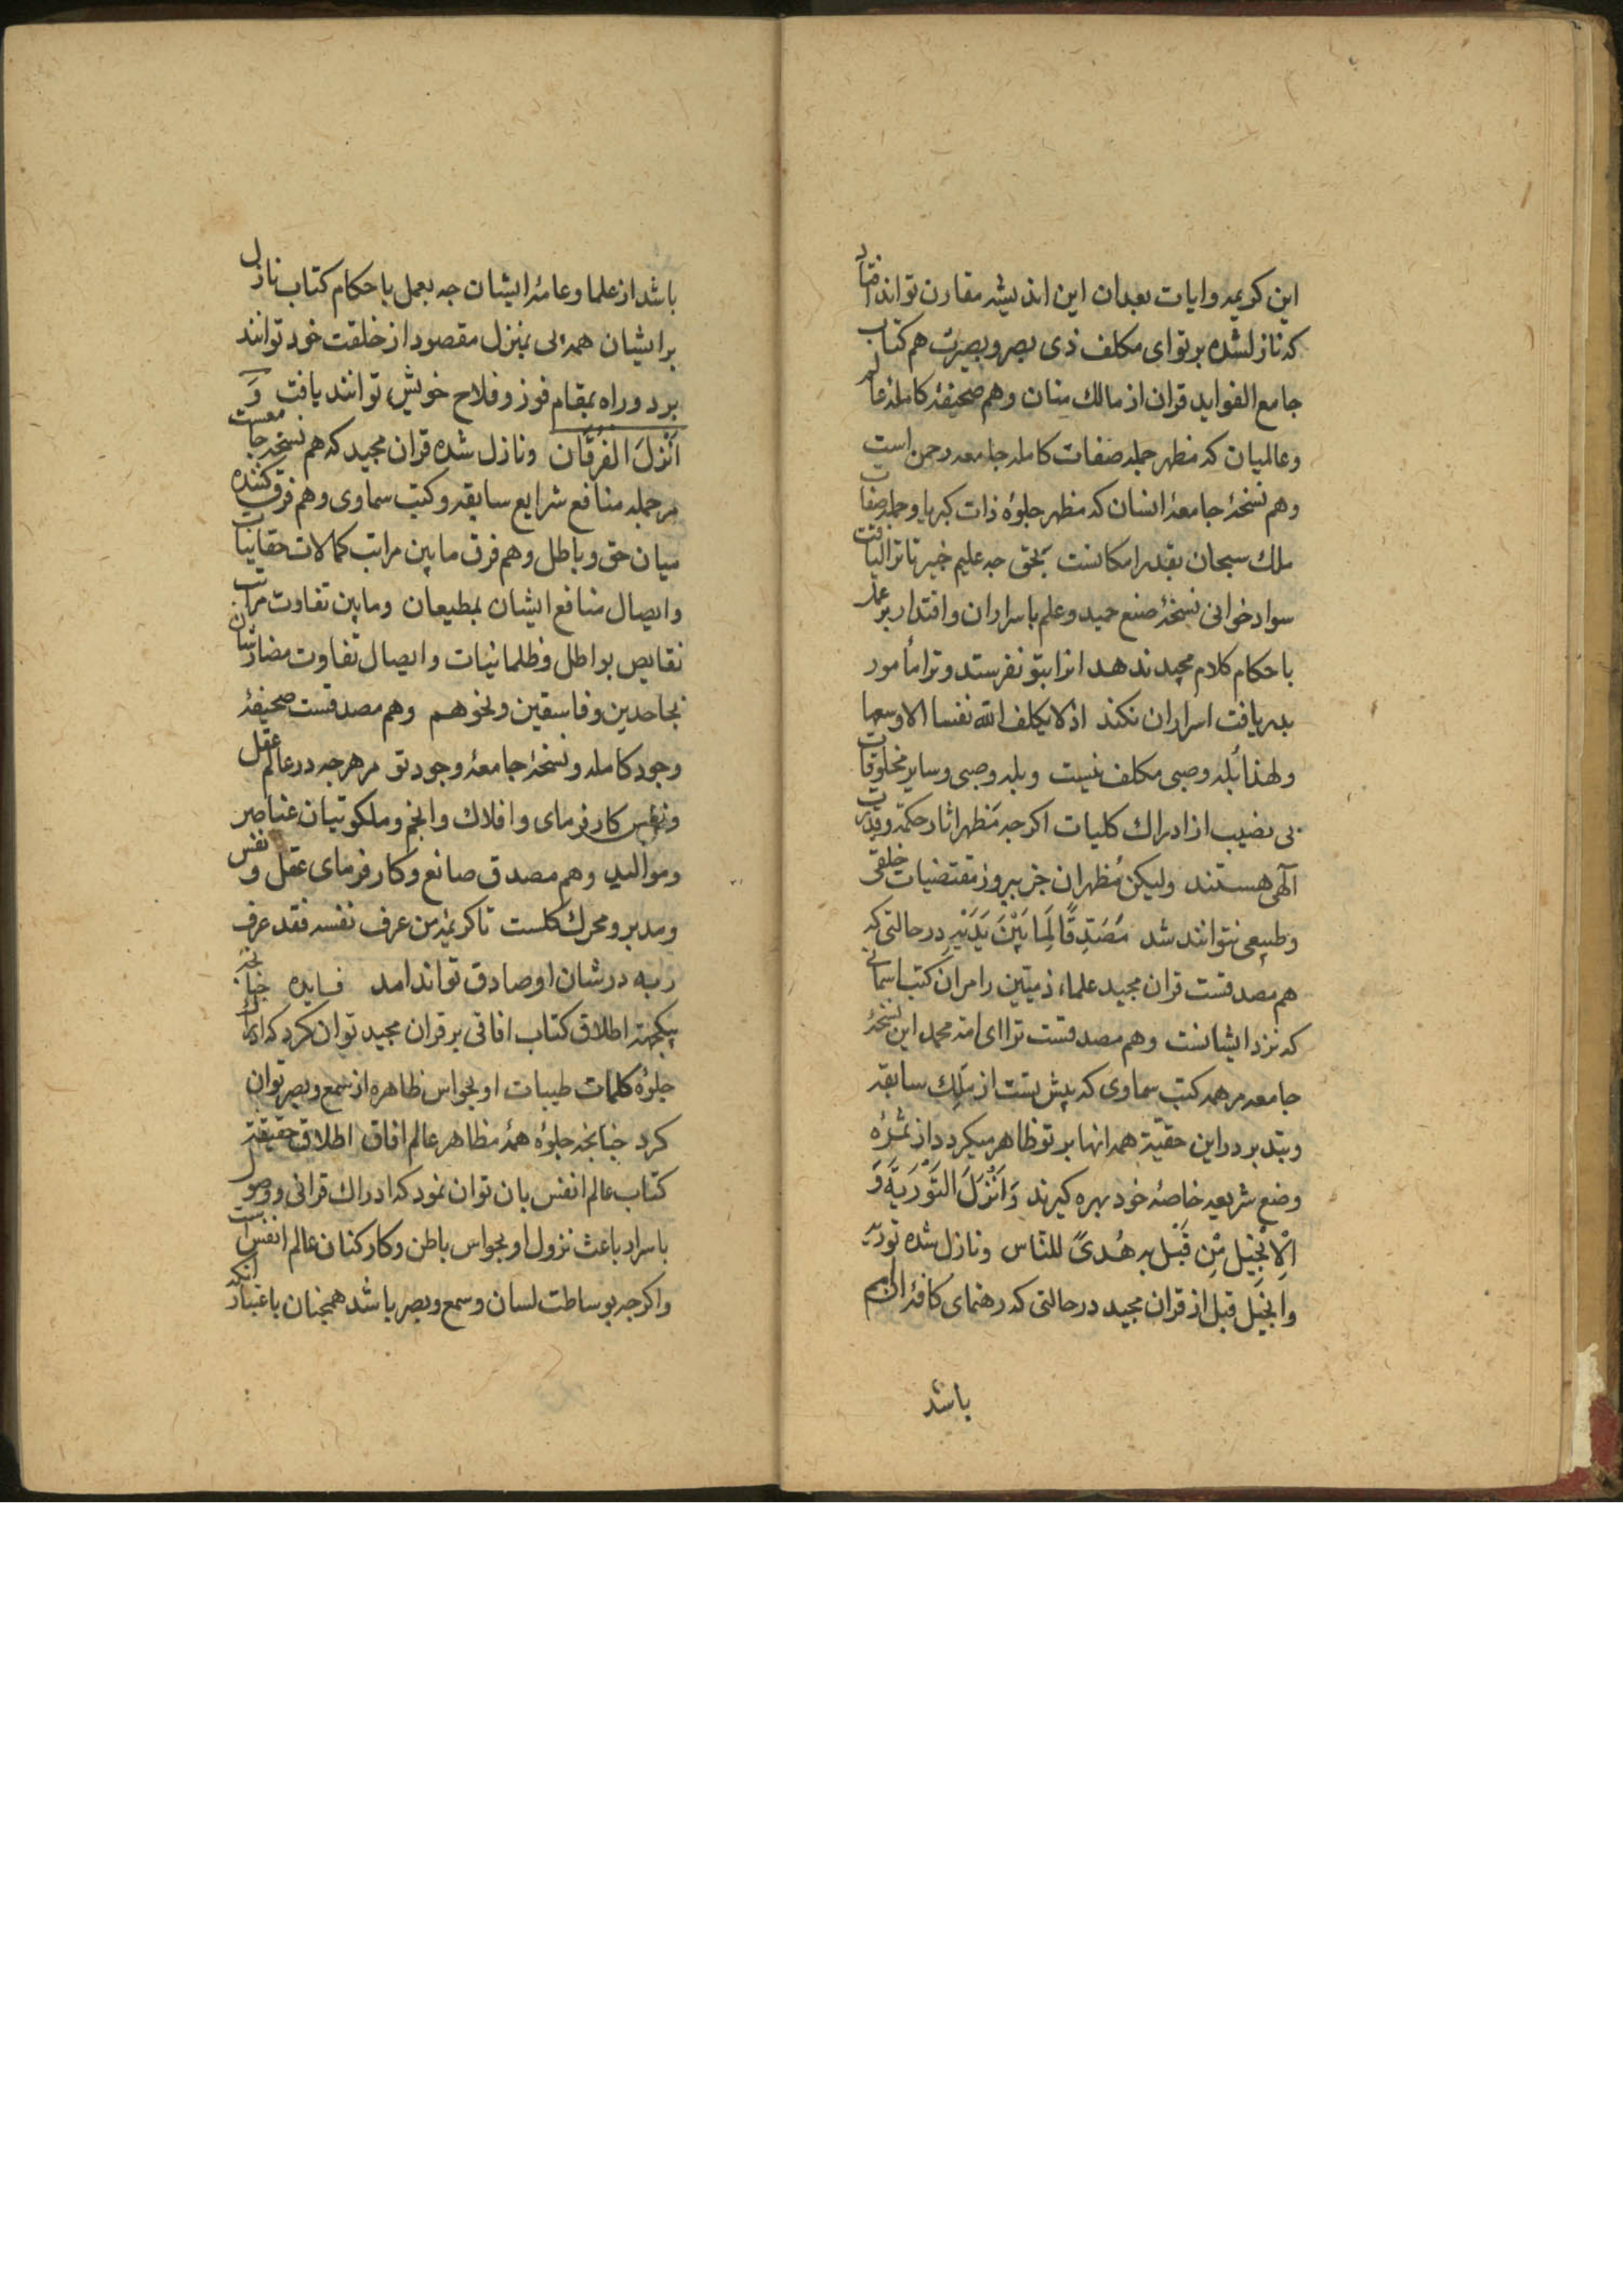 این کریمه و ایات بعد ان این اندیشه مقارن تواند افتاد
که نازلشده بر تو ای مکلف ذی بصر و بصیرت هم کتاب
جامع الفواید قران از مالك منان و هم صحیفهٔ کاملهٔ عالم
و عالمیان که مظهر جمله صفات کامله جامعه رحمن است
و هم نسخهٔ جامعهٔ انسان که مظهر جلوهٔ ذات کبریا و جمله صفات
ملك سبحان بقدر امکانست بحق جه علیم خبیر تا ترا لیاقت
سواد خوانی نسخهٔ صنع حمید و علم باسرار ان و اقتدار بر عمل
باحکام کلام مجید ندهد انرا بتو نفرستد و ترا مأمور
بدریافت اسرار ان نکند اذ لا یکلف الله نفسا الا وسعها
و لهذا بله و صبی مکلف نیست و بله و صبی و سایر مخلوقات
بی نصیب از ادراك کلیات اکرجه مظهر اثار حکمة و قدرت
آلهی هستند ولیکن مظهر ان جز ببروز مقتضیات خلقی
و طبیعی نتوانند شد مُصَدِّقًا لِمَا بَيْنَ يَدَيْهِ در حالتی که
هم مصدقست قران مجید علماء ذمیین را مر ان کتب اسمانی
که نزد ایشانست و هم مصدقست ترا ای امة محمد این نسخهٔ
جامعه مر همه کتب سماوی که پیش تست از ملك سابقه
و بتدبر در این حقیّة همه انها بر تو ظاهر میکردد از ثمرهٔ
وضع شریعه خاصهٔ خود بهره کیرند وَاَنْزَلَ التَّوْرَيةَ وَ
الْاِنْجِيلَ مِنْ قَبْلُ بر هُدىً للنّاس و نازل شده توریة
و انجیل قبل از قران مجید در حالتی که رهنمای کافهٔ انام
باشد
باشد از علما و عامهٔ ایشان جه بعمل باحکام کتاب نازل
بر ایشان همه پی بمنزل مقصود از خلقت خود توانند
برد و راه بمقام فوز و فلاح خویش توانند یافت وَ
اَنْزَلَ الفُرْقَانَ و نازل شده قران مجید که هم نسخه جامعست
مر جمله منافع شرایع سابقه و کتب سماوی و هم فرق کننده
میان حق و باطل و هم فرق مابین مراتب کمالات حقانیات
و ایصال منافع ایشان بمطیعان و مابین تفاوت مراتب
نقایص بواطل و ظلمانیات و ایصال تفاوت مضار شان
بجاحدین و فاسقین و نحوهم و هم مصدقست صحیفهٔ
وجود کامله و نسخهٔ جامعهٔ وجود تو مر هرجه در عالم عقل
و نفس کار فرمای و افلاك و انجم و ملکوتیان عناصر
و موالید و هم مصدق صانع و کار فرمای عقل و نفس
و مدبر و محرك کلست تا کریمهٔ من عرف نفسه فقد عرف
ربه در شان او صادق تواند امد فایده جنانجه
بیکجهة اطلاق کتاب افاقی بر قران مجید توان کرد که ادراك
جلوهٔ کلمات طیبات او بحواس ظاهره از سمع و بصر توان
کرد جنانجه جلوهٔ همهٔ مظاهر عالم افاق اطلاق حقیقة
کتاب عالم انفس بان توان نمود که ادراك قرانی و وصول
باسرار باعث نزول او بحواس باطن و کارکنان عالم انفس است
و اکرجه بوساطت لسان و سمع و بصر باشد همجنان باعتبار انکه